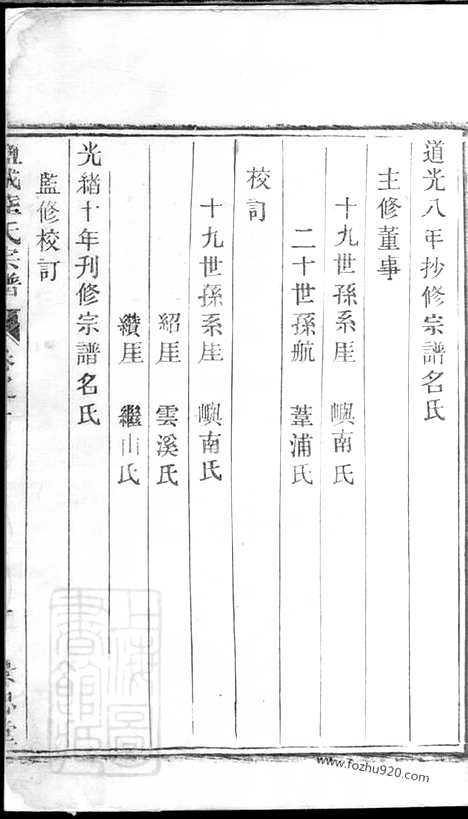 道光八年抄修宗譜名氏
主修董事
十九世孫系厓 嶼南氏
二十世孫航 葦浦氏
校訂
十九世孫系厓 嶼南氏
紹厓 雲溪氏
纘厓 繼山氏
光緒十年刊修宗譜名氏
監修校訂
氏宗譜
上海圖書館藏
www.fozhu920.com